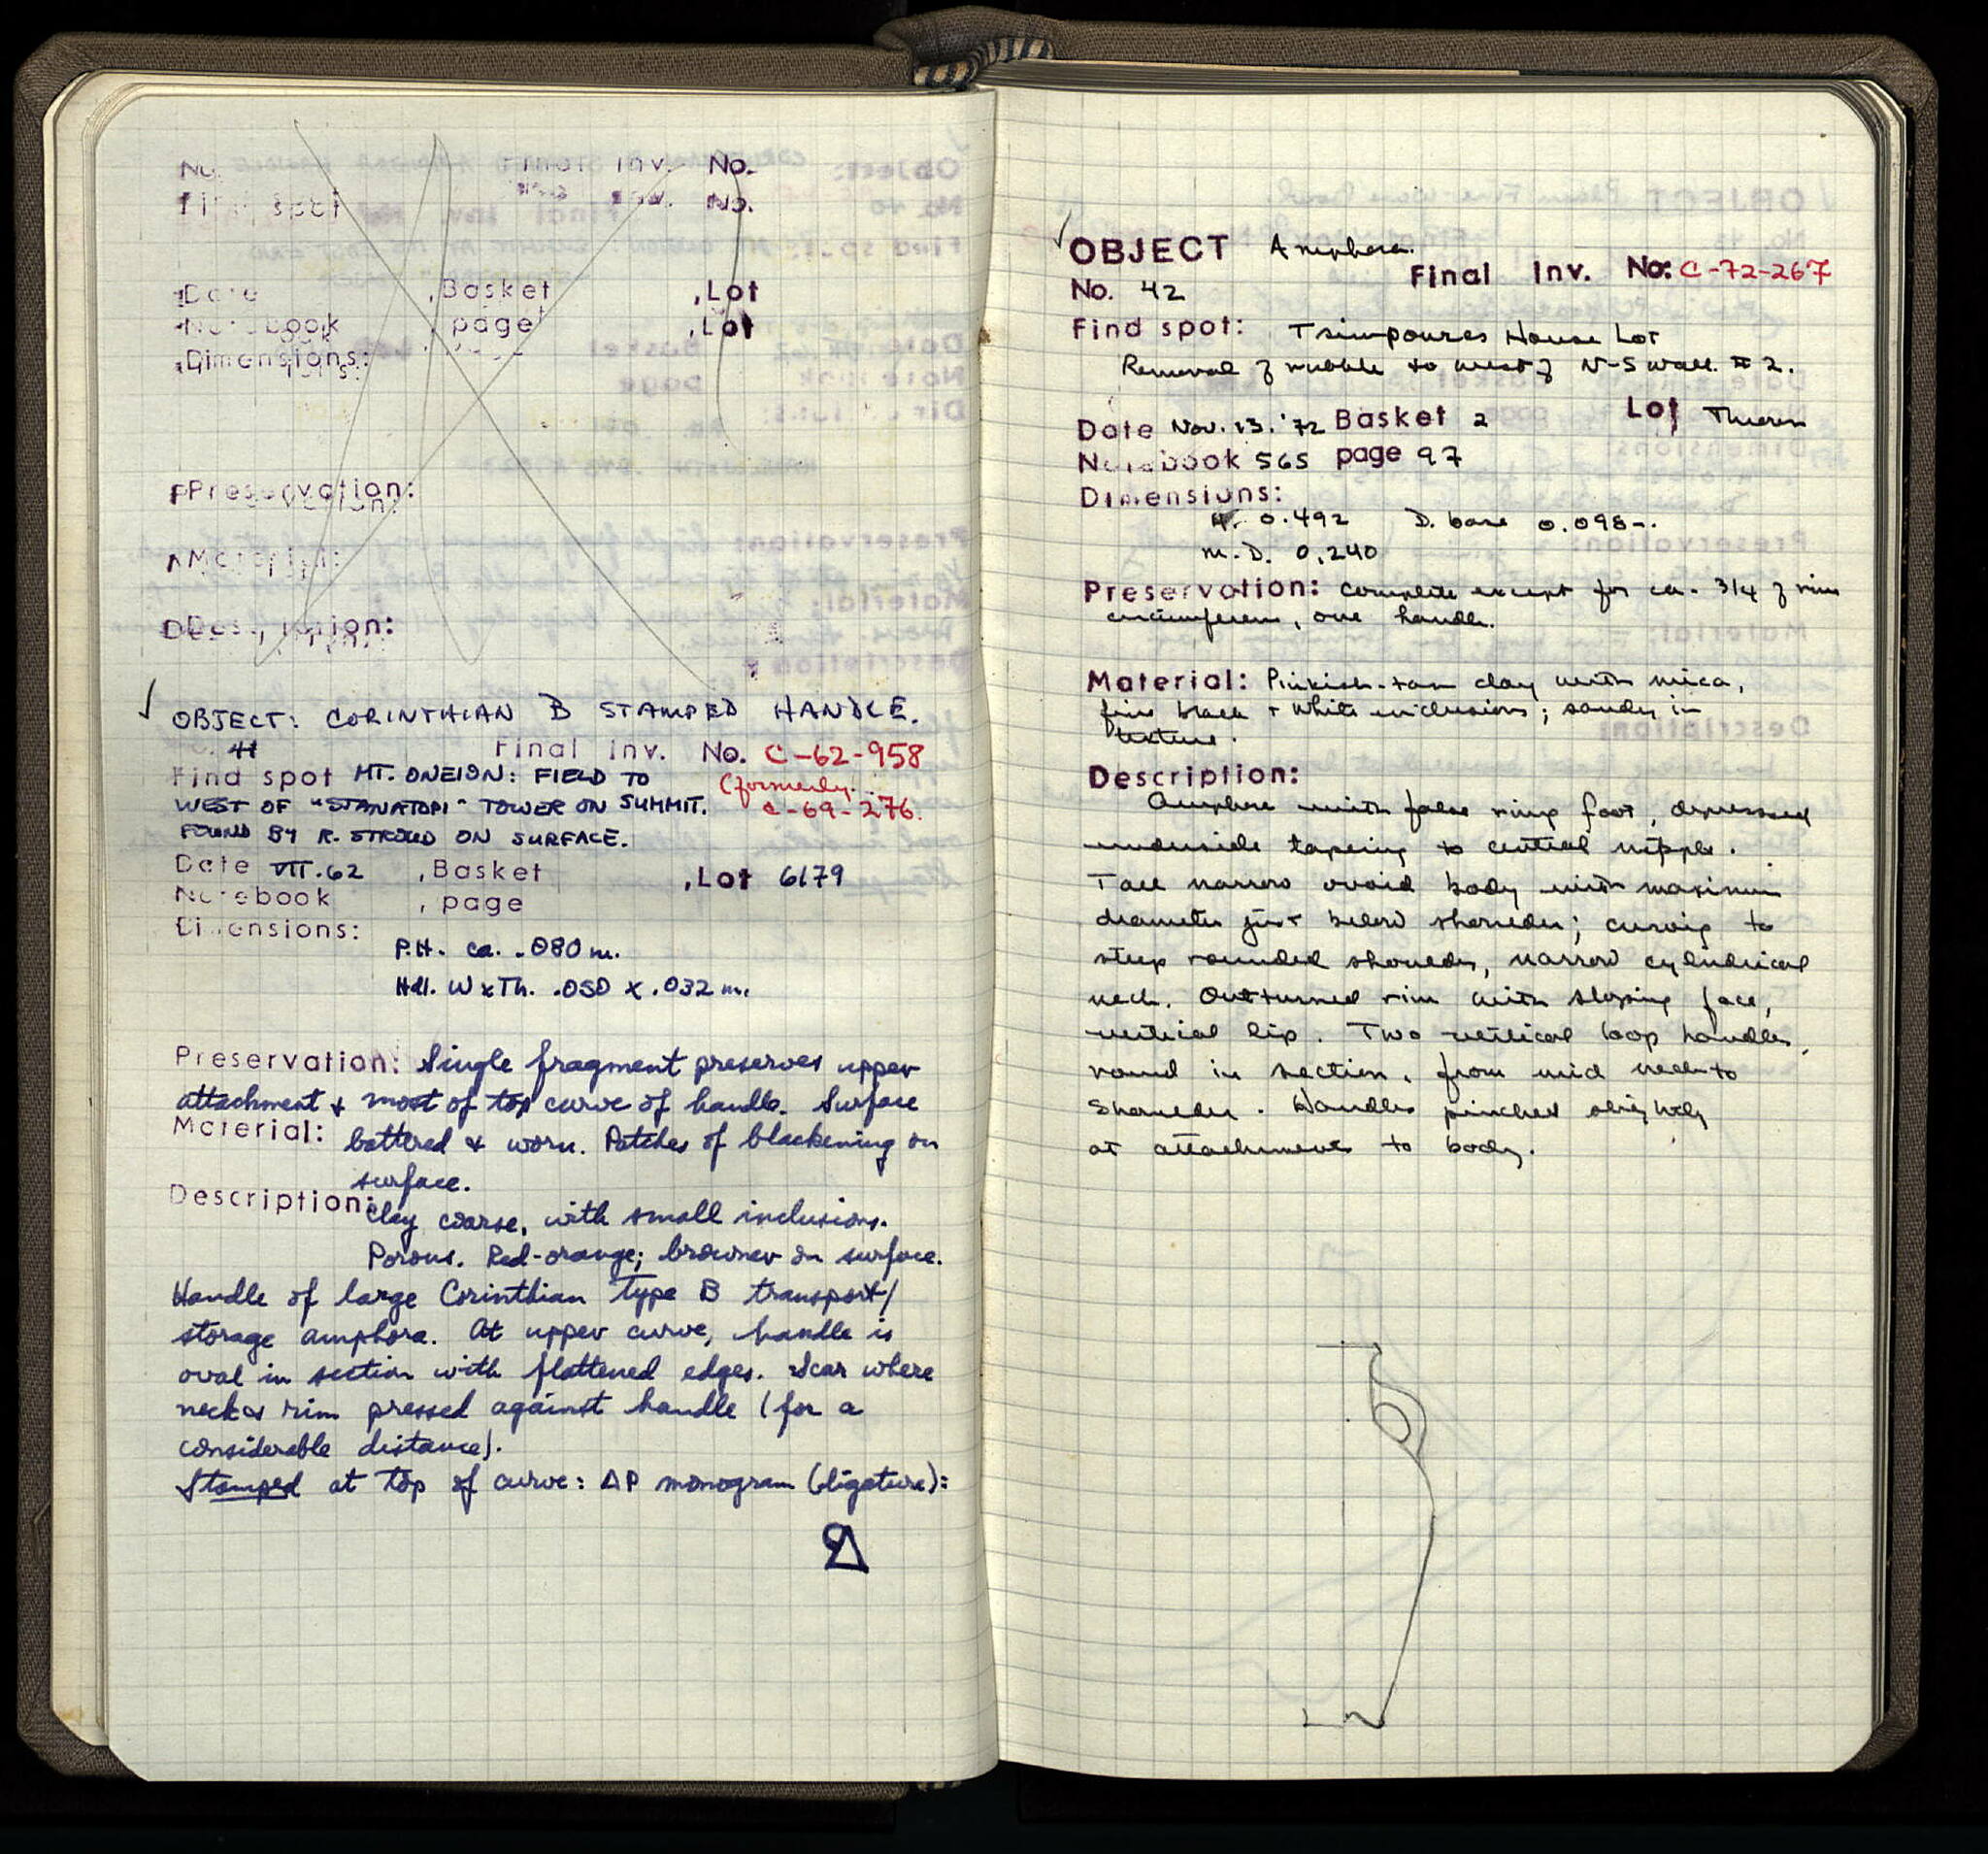 No. Final Inv. No.
Find spot Inv. No.
Date , Basket , Lot
Notebook , page , Lot
Dimensions:
Preservation:
Material:
Description:
✓
OBJECT: CORINTHIAN B STAMPED HANDLE.
41 Final Inv. No. C-62-958
Find spot MT. ONEION: FIELD TO (formerly
WEST OF "STANATOPI" TOWER ON SUMMIT. C-69-276.
FOUND BY R. STROUD ON SURFACE.
Date VII.62 , Basket , Lot 6179
Notebook , page
Dimensions:
P.H. ca. .080 m.
Hdl. W x Th. .050 x .032 m.
Preservation: Single fragment preserves upper
attachment & most of top curve of handle. Surface
Material: battered & worn. Patches of blackening on
surface.
Description: Clay coarse, with small inclusions.
Porous. Red-orange; browner on surface.
Handle of large Corinthian Type B transport/
storage amphora. At upper curve, handle is
oval in section with flattened edges. Scar where
neck & rim pressed against handle (for a
considerable distance).
Stamped at top of curve: ΔP monogram (ligature):
✓ OBJECT Amphora.
Final Inv. No: C-72-267
No. 42
Find spot: Tsimpoures House Lot
Removal of rubble to west of N-S wall # 2.
Date Nov. 13. '72 Basket 2 Lot
Notebook 565 page 97
Dimensions:
H. 0.492 D. base 0.098-.
m.D. 0.240
Preservation: Complete except for ca. 3/4 of rim
circumference, one handle.
Material: Pinkish-tan clay with mica,
fine black + white inclusions; sandy in
texture.
Description:
Amphora with false ring foot, depressed
underside tapering to central nipple.
Tall narrow ovoid body with maximum
diameter just below shoulder; curving to
steep rounded shoulder, narrow cylindrical
neck. Outturned rim with sloping face,
vertical lip. Two vertical loop handles,
round in section, from mid neck to
shoulder. Handles pinched slightly
at attachment to body.